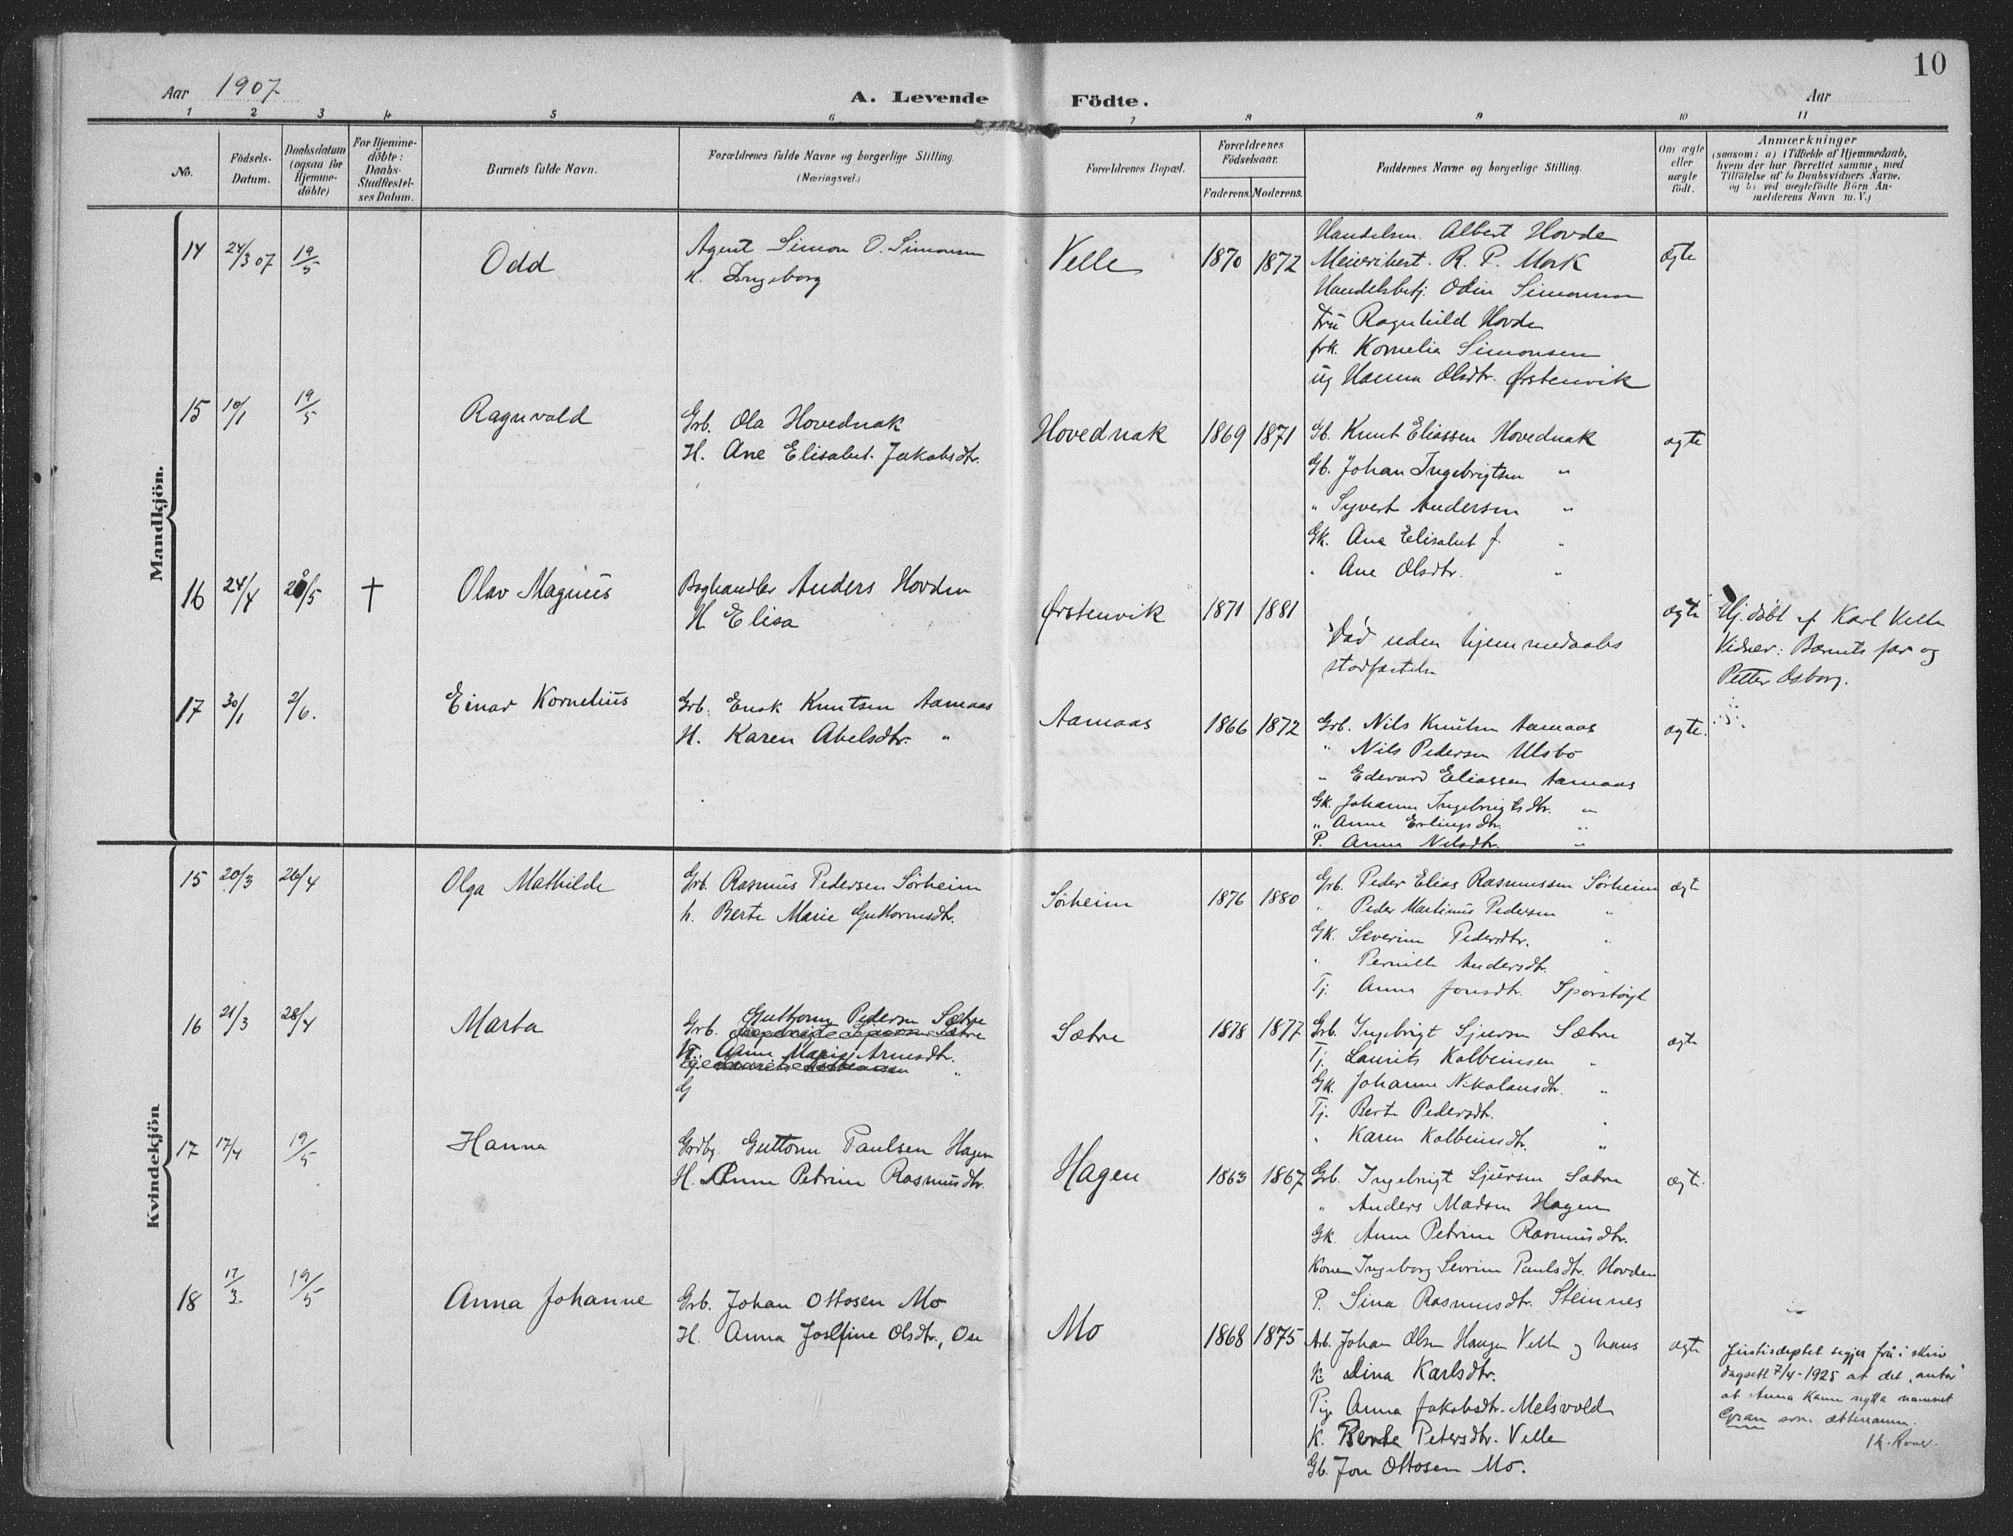 10
Aar 1907
A. Levende Födte.
Aar
1 2 3 4 5 6 7 8 9 10 11
No.
Födsels-Datum.
Daabsdatum (ogsaa for Hjemme-döbte)
For Hjemme-döbte: Daabs-Stadfæstel-ses Datum.
Barnets fulde Navn.
Forældrenes fulde Navne og borgerlige Stilling.
(Næringsvei.)
Forældrenes Bopæl.
Forældrenes Födselsaar.
Faderens. Moderens.
Faddernes Navne og borgerlige Stilling.
Om ægte eller uægte födt.
Anmærkninger
(saasom: a) i Tilfælde af Hjemmedaab,
hvem der har forrettet samme, med
Tilföielse af to Daabsvidners Navne,
og b) ved uægtefödte Börn An-
melderens Navn m. V.)
Mandkjön.
14 24/3 07 19/5 Odd
Agent Simon O. Simonsen
K. Ingeborg
Velle 1870 1872
Handelsm. Albert Hovde
Meieribest. R. P. Mork
Handelsbetj. Odin Simonsen
Fru Ragnhild Hovde
frk. Kornelia Simonsen
ug Hanna Olsdtr. Ørstenvik
ægte
15 10/1 19/5 Ragnvald
Grb. Ola Hovednak
H. Ane Elisabet Jakobsdtr.
Hovednak 1869 1871
Gb. Knut Eliassen Hovednak
Gb. Johan Ingebrigtsen "
" Syvert Andersen "
Gk. Ana Elisabet J. "
" Ane Olsdtr. "
ægte
16 24/4 20/5 † Olav Magnus
Boghandler Anders Hovden
H Elisa
Ørstenvik 1871 1881
Død uden hjemmedaabs
stadfæstelse
ægte
Hj.døbt af Karl Velle
Vidner: Barnets far og
Petter Osborg.
17 30/1 2/6. Einar Kornelius
Grb. Enok Knutsen Aamaas
H. Karen Abelsdtr. "
Aamaas 1866 1872
Grb. Nils Knutsen Aamaas
" Nils Pedersen Ulsbo
" Edevard Eliassen Aamaas
Gk. Johanne Ingebrigtsdtr. "
" Anne Erlingsdtr. "
P. Anna Nilsdtr. "
ægte.
Kvindekjön
15 20/3 26/4 Olga Mathilde
Grb. Rasmus Pedersen Sørheim
h. Berte Marie Guttormsdtr.
Sørheim 1876 1880
Grb. Peder Elias Rasmussen Sørheim
" Peder Martinus Pedersen "
Gk. Severine Pedersdtr. "
" Pernille Andersdtr. "
Tj. Anna Jonsdtr. Sporstøyl
ægte
16 21/3 28/4 Marta
Grb. Guttorm Pedersen Sætre
H. Anne Marie Arnesdtr. "
G
Sætre 1878 1877
Grb. Ingebrigt Sjursen Sætre
Tj. Laurits Kolbeinsen "
Gk. Johanne Nikolausdtr. "
Tj. Berte Pedersdtr.
" Karen Kolbeinsdtr. "
ægte
17 17/4 19/5 Hanna
Grdbr Guttorm Paulsen Hagen
H. Anne Petrine Rasmusdtr.
Hagen 1863 1867
Grb. Ingebrigt Sjursen Sætre
" Anders Madsen Hagen
Gk. Anne Petrine Rasmusdtr.
Konen Ingeborg Sevrine Paulsdtr. Hovden
P. Sina Rasmusdtr. Steinnes
ægte.
18 17/3. 19/5 Anna Johanne
Grb. Johan Ottosen Mo
H. Anna Josefine Olsdtr., Ose
Mo 1868 1875
Arb. Johan Olsen Haugen Velle og hans
K. Lina Karlsdtr.
Pige Anna Jakobsdtr. Melsvold
K. Berte Petersdtr. Velle
Gb. Jon Ottosen Mo.
ægte
Justisdeptet segjer frå i skriv
dagsett 7/4-1925 at det "antar"
at Anna kann nytta namnet
Gran som ættenamn.